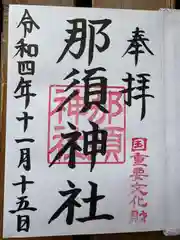 奉拝
国重要文化財
那須神社
那須神社
令和四年十一月十五日